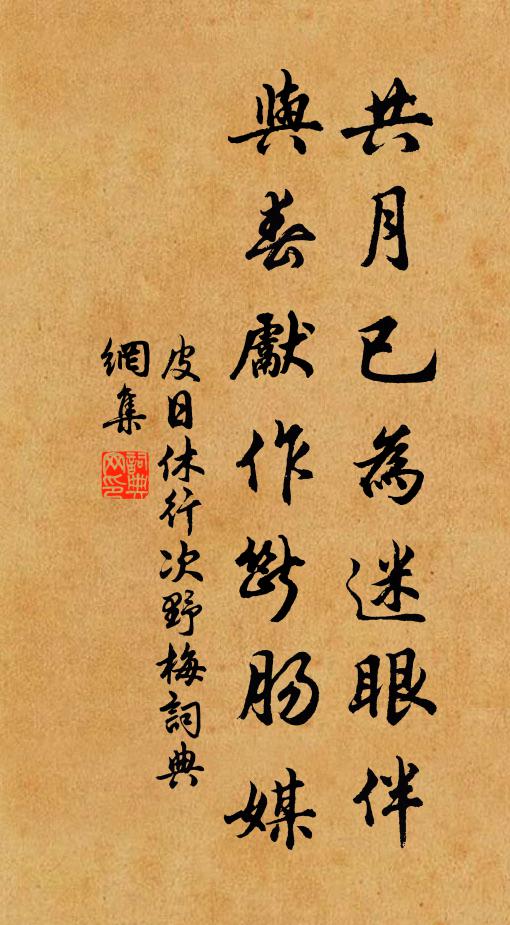 共月已為迷眼伴
與春獻作斷腸媒
皮日休行次野梅詞典
網集
詞典網印